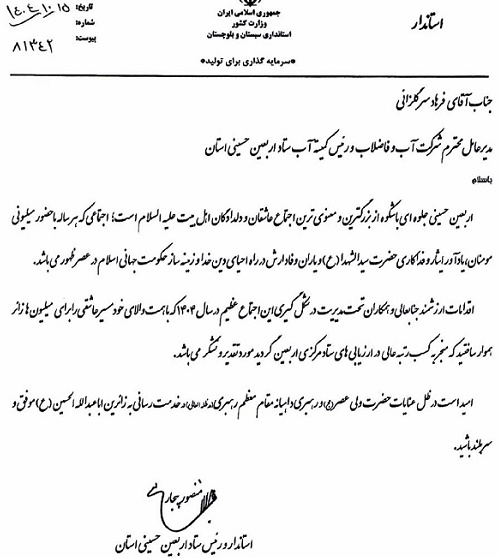 جمهوری اسلامی ایران
وزارت کشور
استانداری سیستان و بلوچستان
«سرمایه گذاری برای تولید»
استاندار
تاریخ: ۱۴۰۴،۱۰،۱۵
شماره:
پیوست: ۸۱۳۴۲
جناب آقای فرهاد سرگلزائی
مدیرعامل محترم شرکت آب و فاضلاب و رئیس کمیته آب ستاد اربعین حسینی استان
باسلام
اربعین حسینی جلوه ای باشکوه از بزرگترین و معنوی ترین اجتماع عاشقان و دلدادگان اهل بیت علیه السلام است؛ اجتماعی که هر ساله با حضور میلیونی
مومنان، یادآور ایثار و فداکاری حضرت سیدالشهدا (ع) و یاران و فادارش در راه احیای دین خدا و زمینه ساز حکومت جهانی اسلام در عصر ظهور می باشد.
اقدامات ارزشمند جنابعالی و همکاران تحت مدیریت در شکل گیری این اجتماع عظیم در سال ۱۴۰۴ که با همت والای خود مسیر عاشقی را برای میلیون ها زائر
هموار ساختید که منجر به کسب رتبه عالی در ارزیابی های ستاد مرکزی اربعین گردید مورد تقدیر و تشکر می باشد.
امید است در ظل عنایات حضرت ولی عصر(عج) و رهبری داهیانه مقام معظم رهبری(مدظله العالی) در خدمت رسانی به زائرین اباعبدالله الحسین (ع) موفق و
سربلند باشید.
منصور بیجار
استاندار و رئیس ستاد اربعین حسینی استان